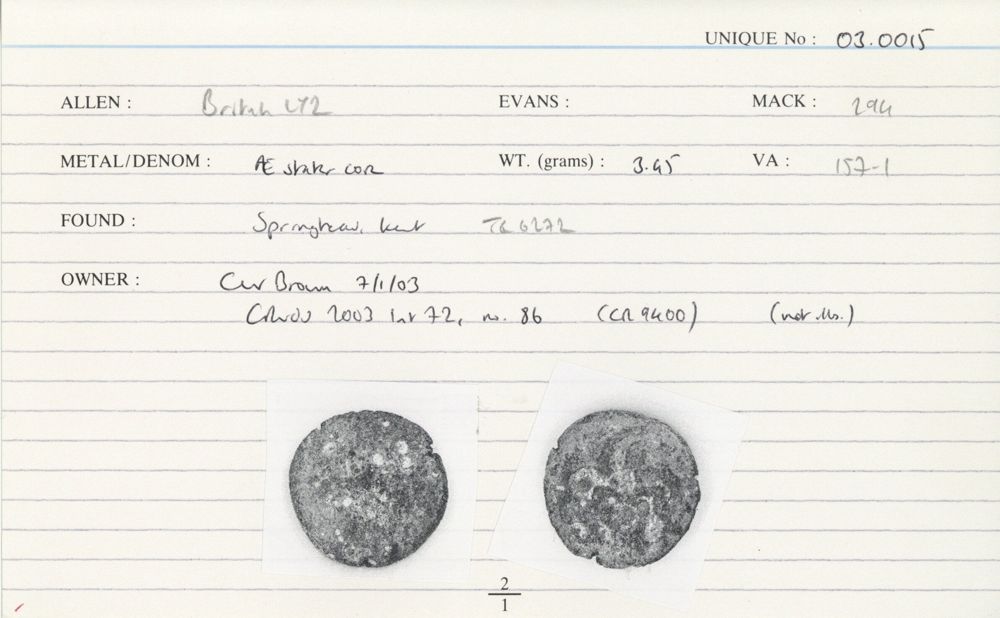 UNIQUE No : 03.0015
ALLEN : British LY2 EVANS : MACK : 294
METAL/DENOM : Æ stater core WT. (grams) : 3.45 VA : 157-1
FOUND : Springhead, Kent TQ 6272
OWNER : Chris Brown 7/1/03
2003 72, no. 86 (CR 9400) (not illus.)
2
1